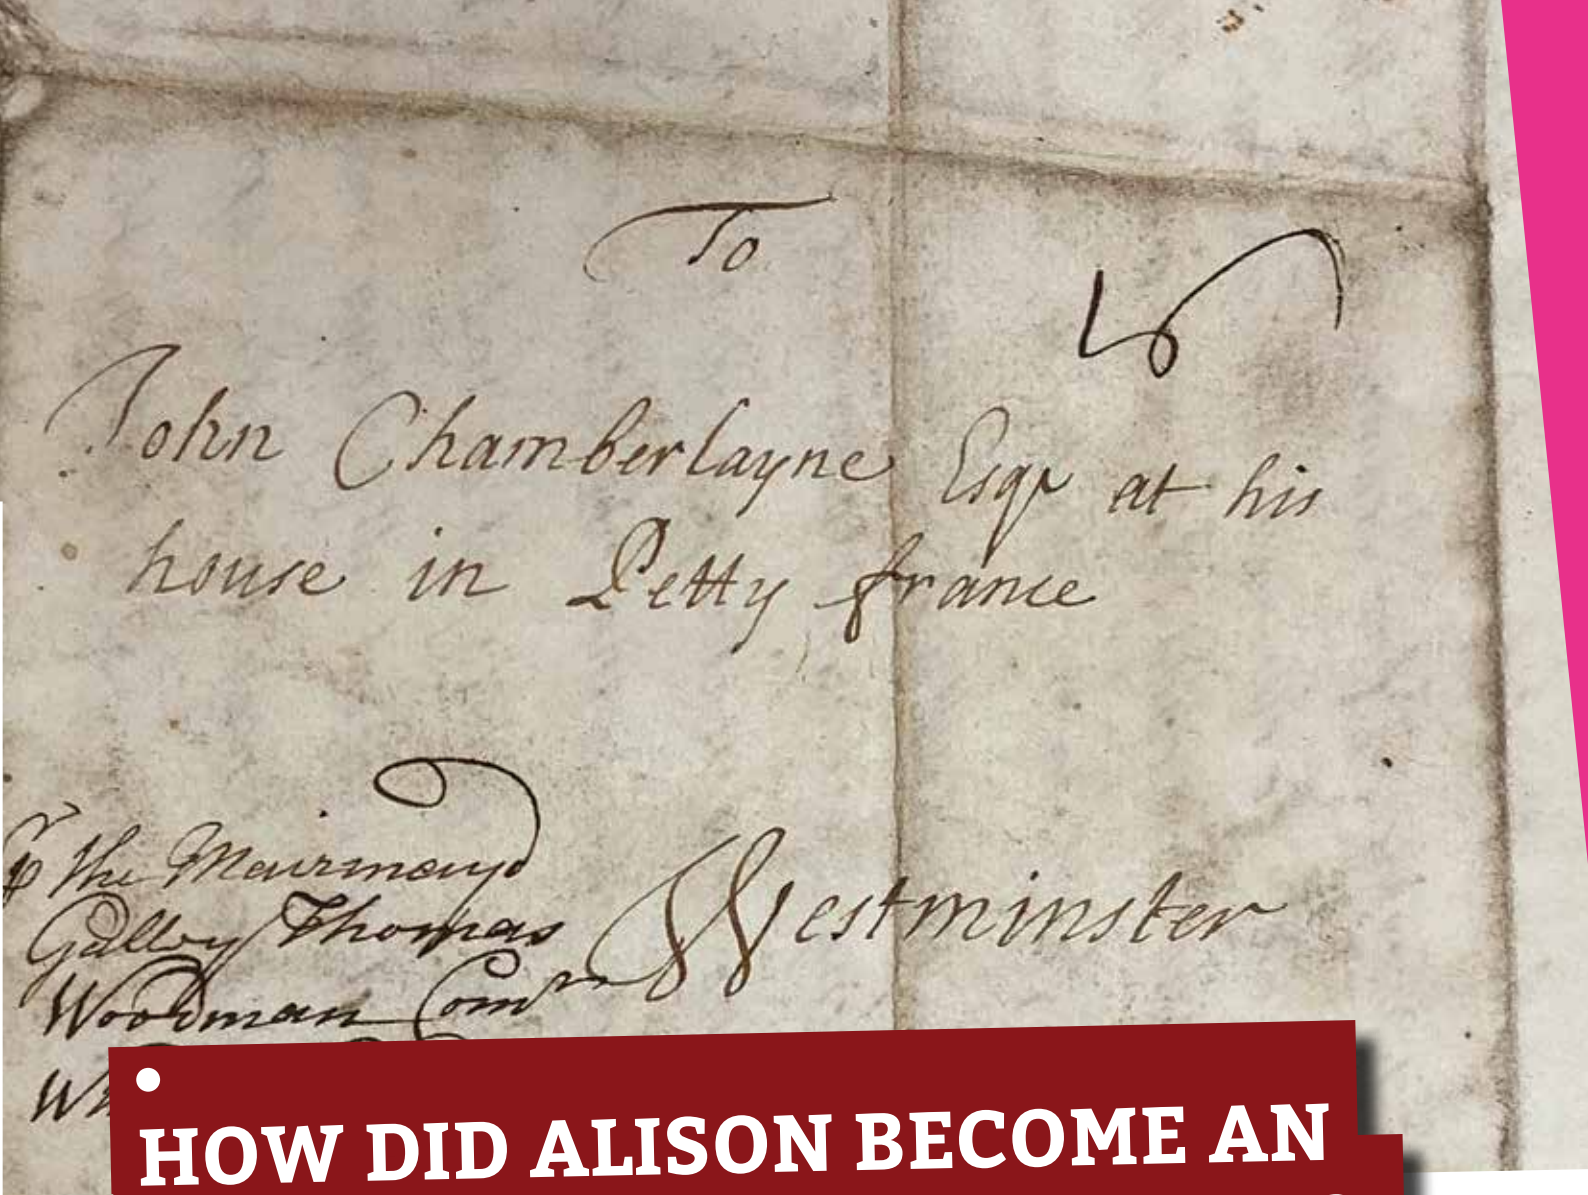 To
John Chamberlayne Esqr at his
house in Petty france
Westminster
pr the Mairmayd
Galley Thomas
Woodman Comdr
HOW DID ALISON BECOME AN